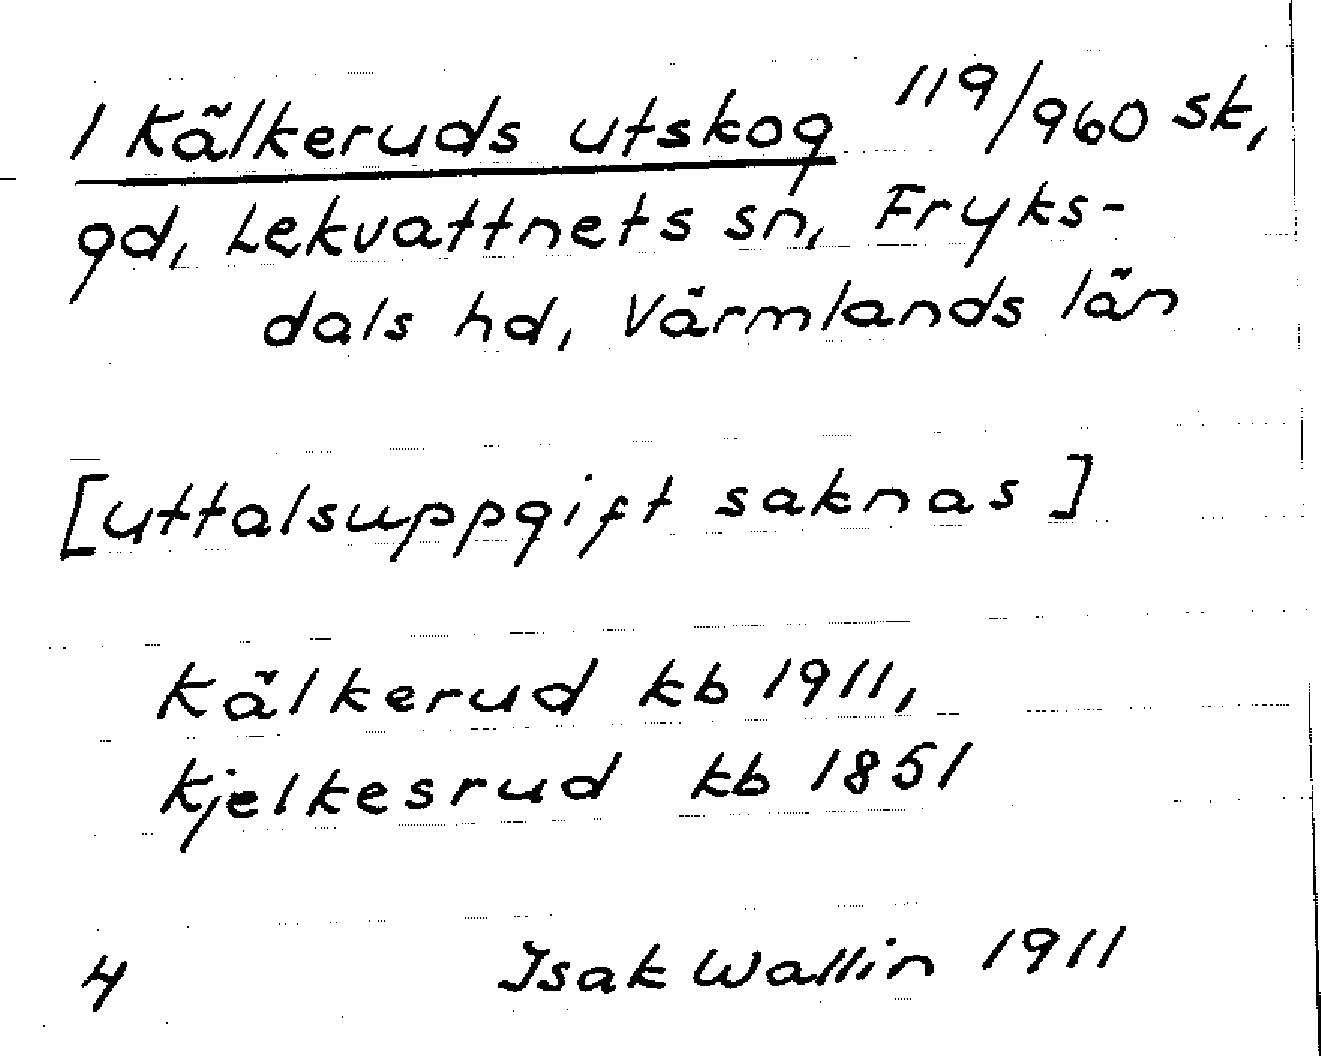 1 Kälkeruds utskog 119/960 sk,
gd, Lekvattnets sn, Fryks-
dals hd, Värmlands län
[uttalsuppgift saknas]
Kälkerud kb 1911,
Kjelkesrud kb 1851
4 Isak Wallin 1911